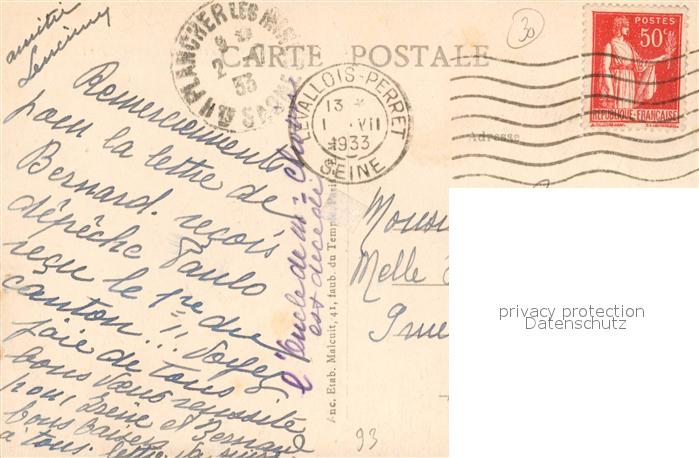 amitié
CARTE POSTALE
30
POSTES
50c
REPUBLIQUE FRANÇAISE
PLANCHER LES MINES
2
33
LEVALLOIS-PERRET
13 *
1 VII
1933
SEINE
Adresse
Remerciements
pour la lettre de
Bernard. reçois
dépêche Paulo
reçu le 1er du
canton!!! Voyez
joie de tous
bons vœux réussite
pour Irène et Bernard
bons baisers
à tous. lettre
l'oncle de M.
est décédé
Anc. Etab. Malcuit, 41, faub. du Temple, Paris
Monsieur
Melle
93
privacy protection
Datenschutz